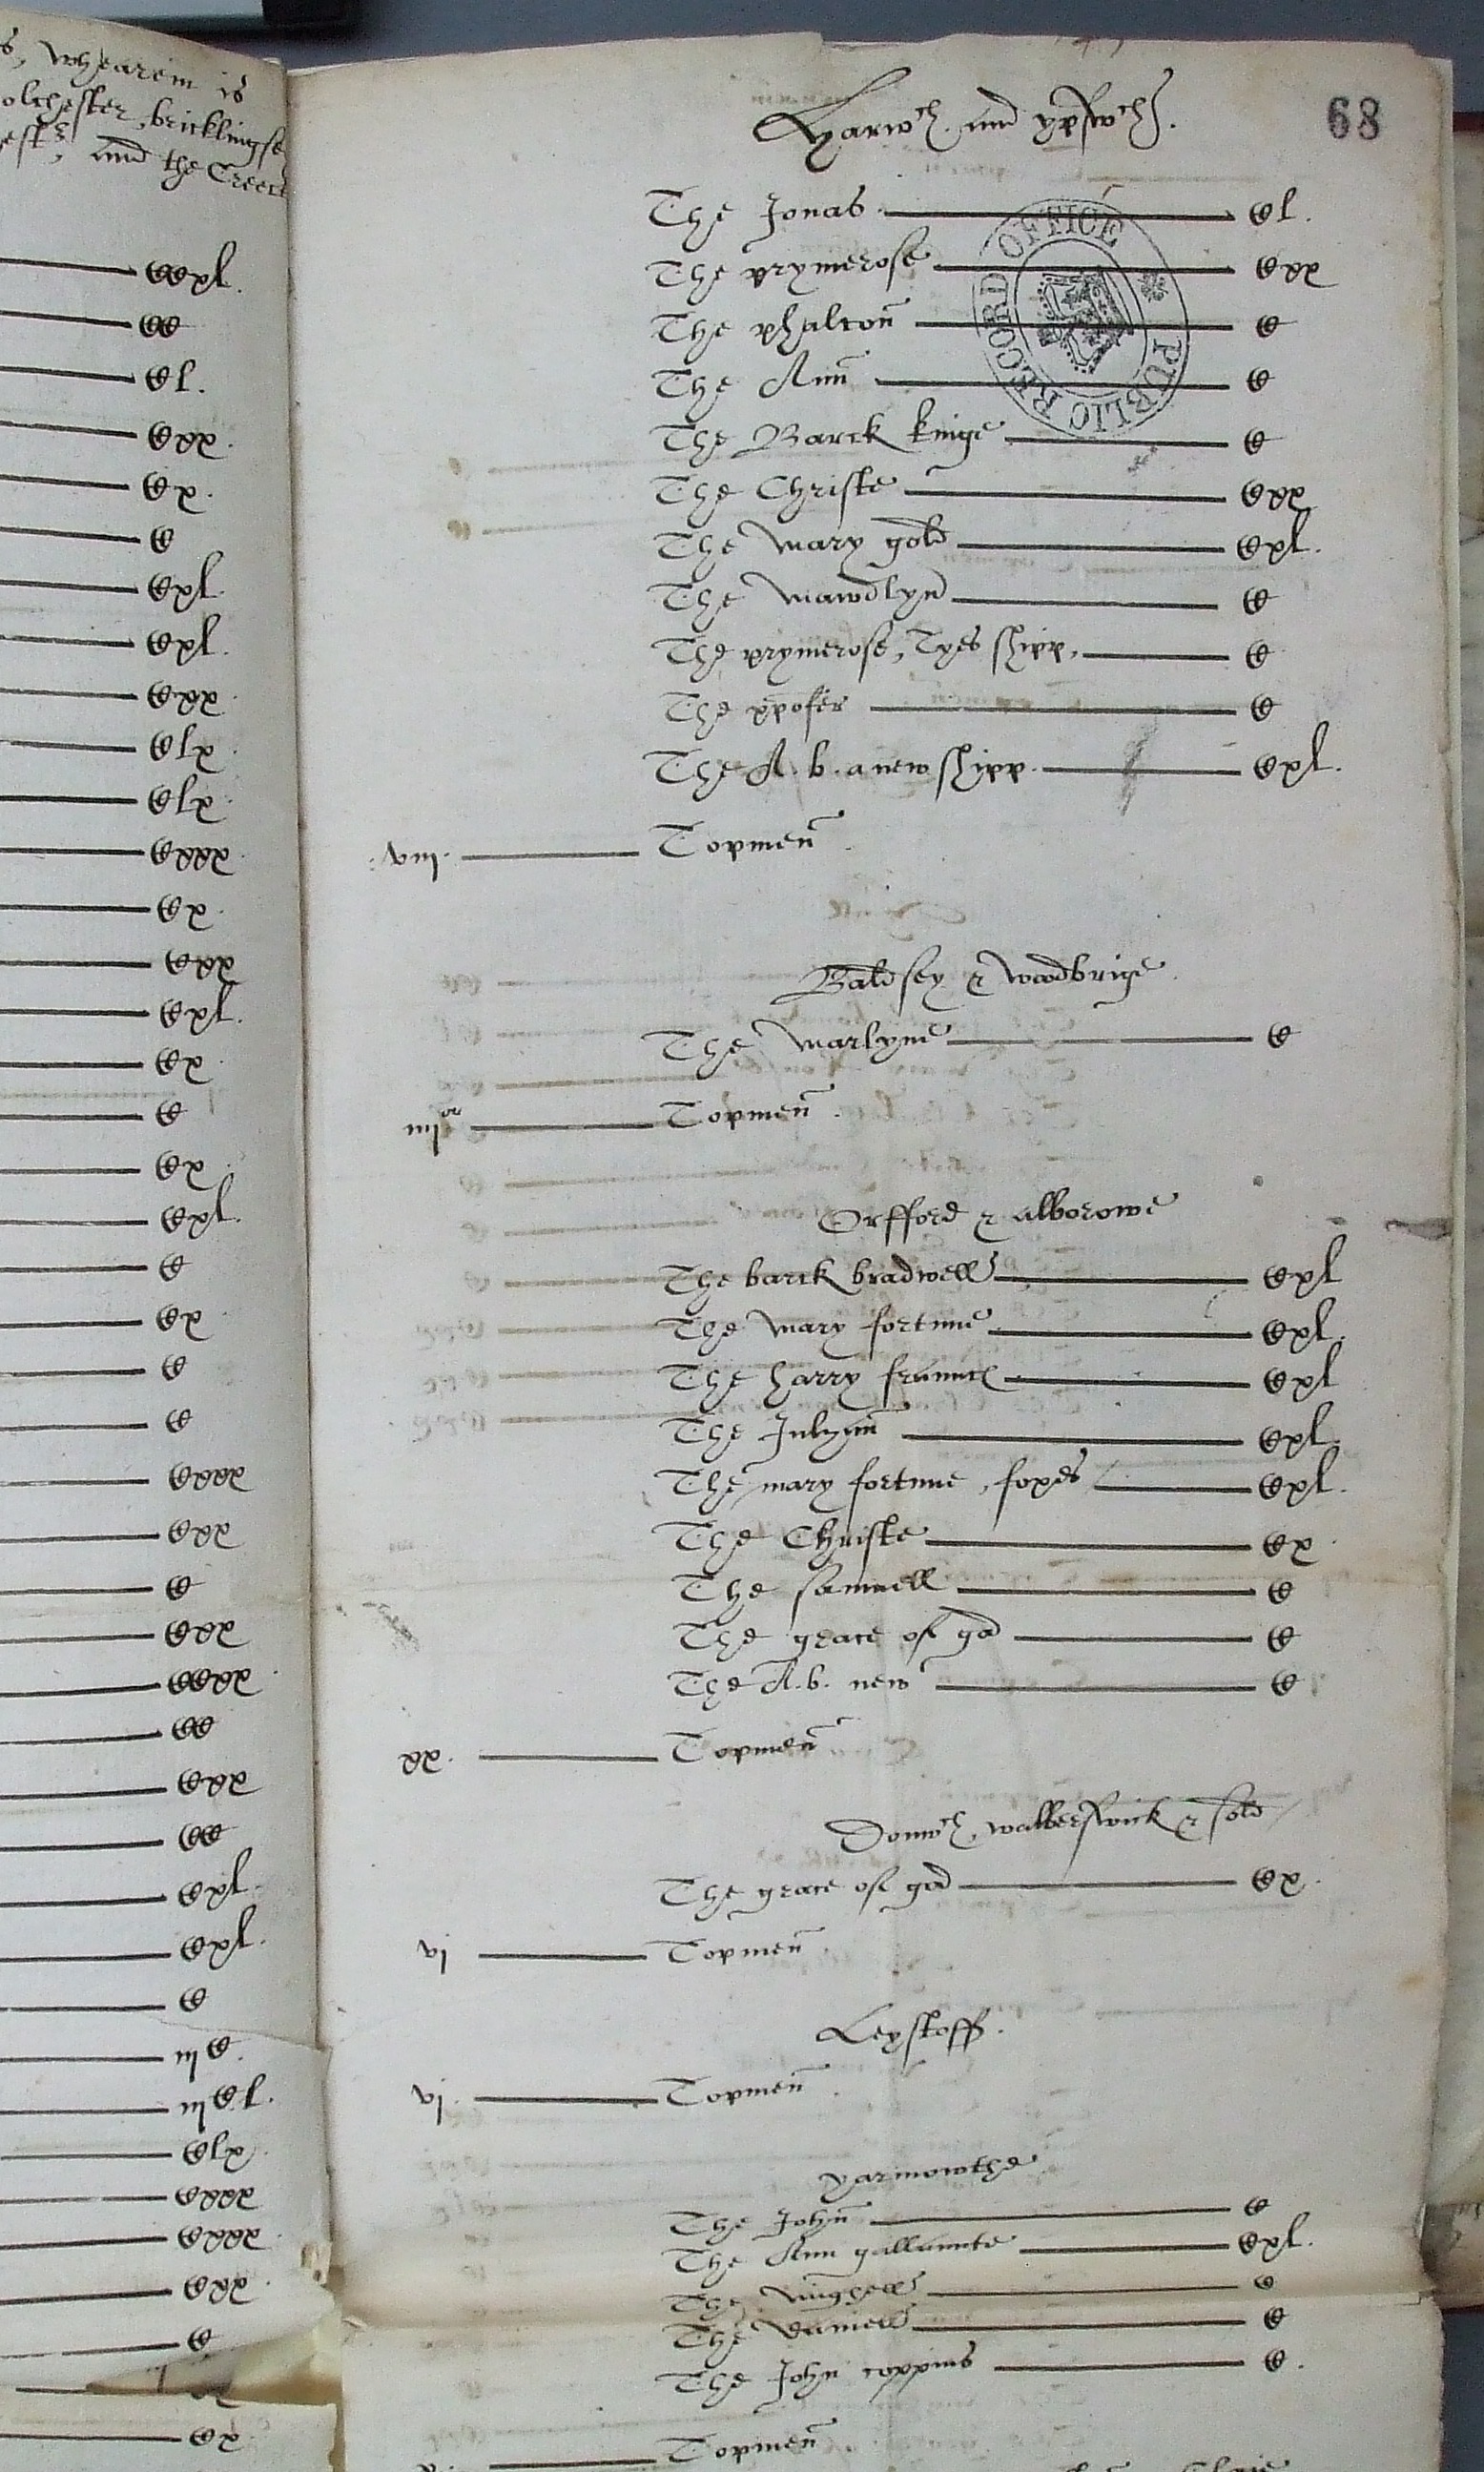 s, whearein is
olchester, bricklingse
and the Creeke
CCxl.
CC
Cl.
Cxx.
Cx.
C
Cxl.
Cxl.
Cxx.
Clx.
Clx.
Cxxx.
Cx.
Cxx
Cxl.
Cx.
C
Cx.
Cxl.
C
Cx.
C
C
Cxxx
Cxx
C
Cxx
CCxx.
CC
Cxx
CC
Cxl.
Cxl.
C
Clx.
Cxxx
Cxxx.
Cxx.
C
Cx.
68
Harwch. and ypswch.
The Jonas Cl.
The prymerose Cxx
The phalcon C
The Ann C
The Barck kinge C
The Christe Cxx
The Mary gold Cxl.
The Mawdlyn C
The prymerose, Tyes shipp. C
The xpofer C
The A. b. a new shipp. Cxl.
.viij. Topmen
Baldsey & woodbrige
The Marlyne C
iiijor Topmen.
Orfford & alborowe
The barck bradwell Cxl
The Mary fortune Cxl.
The harry Cxl
The Julyan Cxl.
The mary fortune, foxes Cxl.
The Christe Cx.
The Samuell C
The grace of god C
The A. b. new C
xx. Topmen
Donwch, walberswick & sold
The grace of god Cx.
vj Topmen.
Leystoff.
vj. Topmen.
yarmowthe
The John C
The Ann gallannte Cxl.
The Mighell C
The Daniell C
The John coppins C.
Topmen
PUBLIC RECORD OFFICE